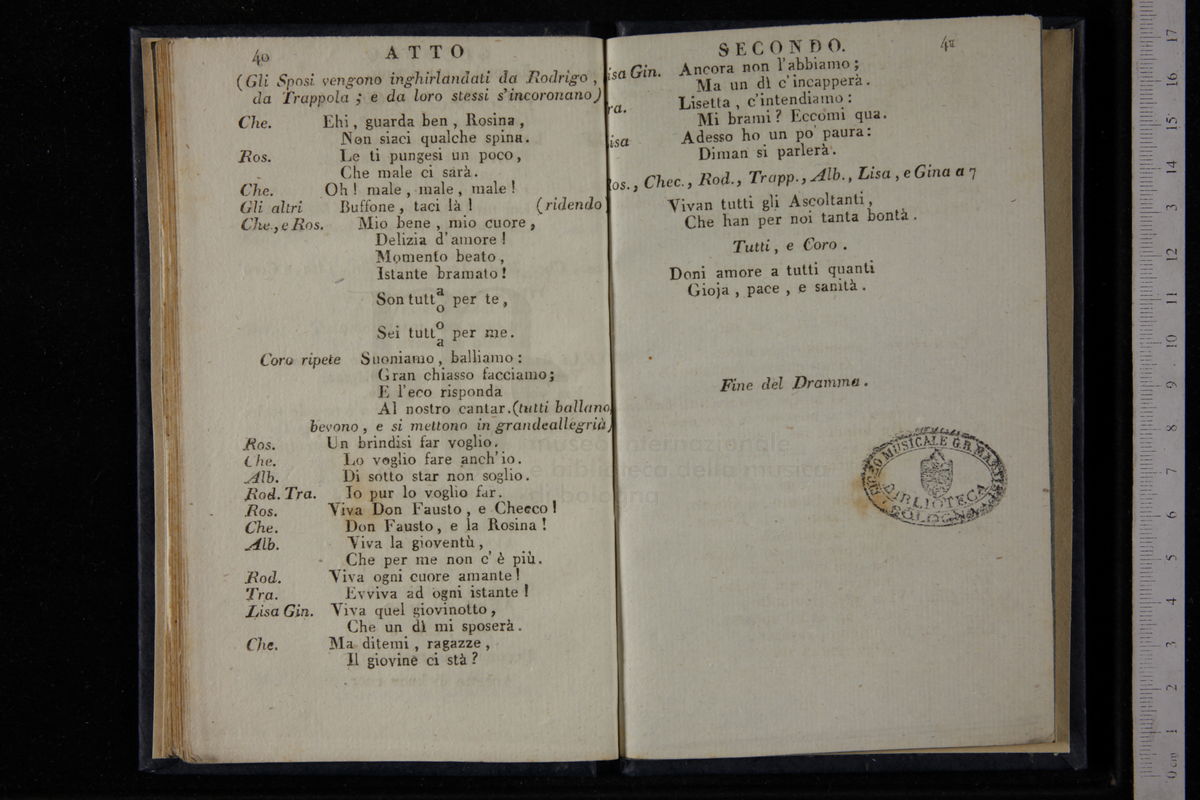 40
ATTO
(Gli Sposi vengono inghirlandati da Rodrigo,
da Trappola; e da loro stessi s'incoronano)
Che. Ehi, guarda ben, Rosina,
Non siaci qualche spina.
Ros. Le ti pungesi un poco,
Che male ci sarà.
Che. Oh! male, male, male!
Gli altri Buffone, taci là! (ridendo)
Che., e Ros. Mio bene, mio cuore,
Delizia d'amore!
Momento beato,
Istante bramato!
Son tutt a/o per te,
Sei tutt o/a per me.
Coro ripete Suoniamo, balliamo:
Gran chiasso facciamo;
E l'eco risponda
Al nostro cantar. (tutti ballano
bevono, e si mettono in grandeallegrià)
Ros. Un brindisi far voglio.
Che. Lo voglio fare anch'io.
Alb. Di sotto star non soglio.
Rod. Tra. Io pur lo voglio far.
Ros. Viva Don Fausto, e Checco!
Che. Don Fausto, e la Rosina!
Alb. Viva la gioventù,
Che per me non c'è più.
Rod. Viva ogni cuore amante!
Tra. Evviva ad ogni istante!
Lisa Gin. Viva quel giovinotto,
Che un dì mi sposerà.
Che. Ma ditemi, ragazze,
Il giovine ci stà?
SECONDO.
41
isa Gin. Ancora non l'abbiamo;
Ma un dì c'incapperà.
ra. Lisetta, c'intendiamo:
Mi brami? Eccomi qua.
isa Adesso ho un po' paura:
Diman si parlerà.
os., Chec., Rod., Trapp., Alb., Lisa, e Gina a 7
Vivan tutti gli Ascoltanti,
Che han per noi tanta bontà.
Tutti, e Coro.
Doni amore a tutti quanti
Gioja, pace, e sanità.
Fine del Dramma.
museo internazionale
e biblioteca della musica
di bologna
MUSICALE G.B. MARTINI
BIBLIOTECA
BOLOGNA
0 cm 1 2 3 4 5 6 7 8 9 10 11 12 13 14 15 16 17